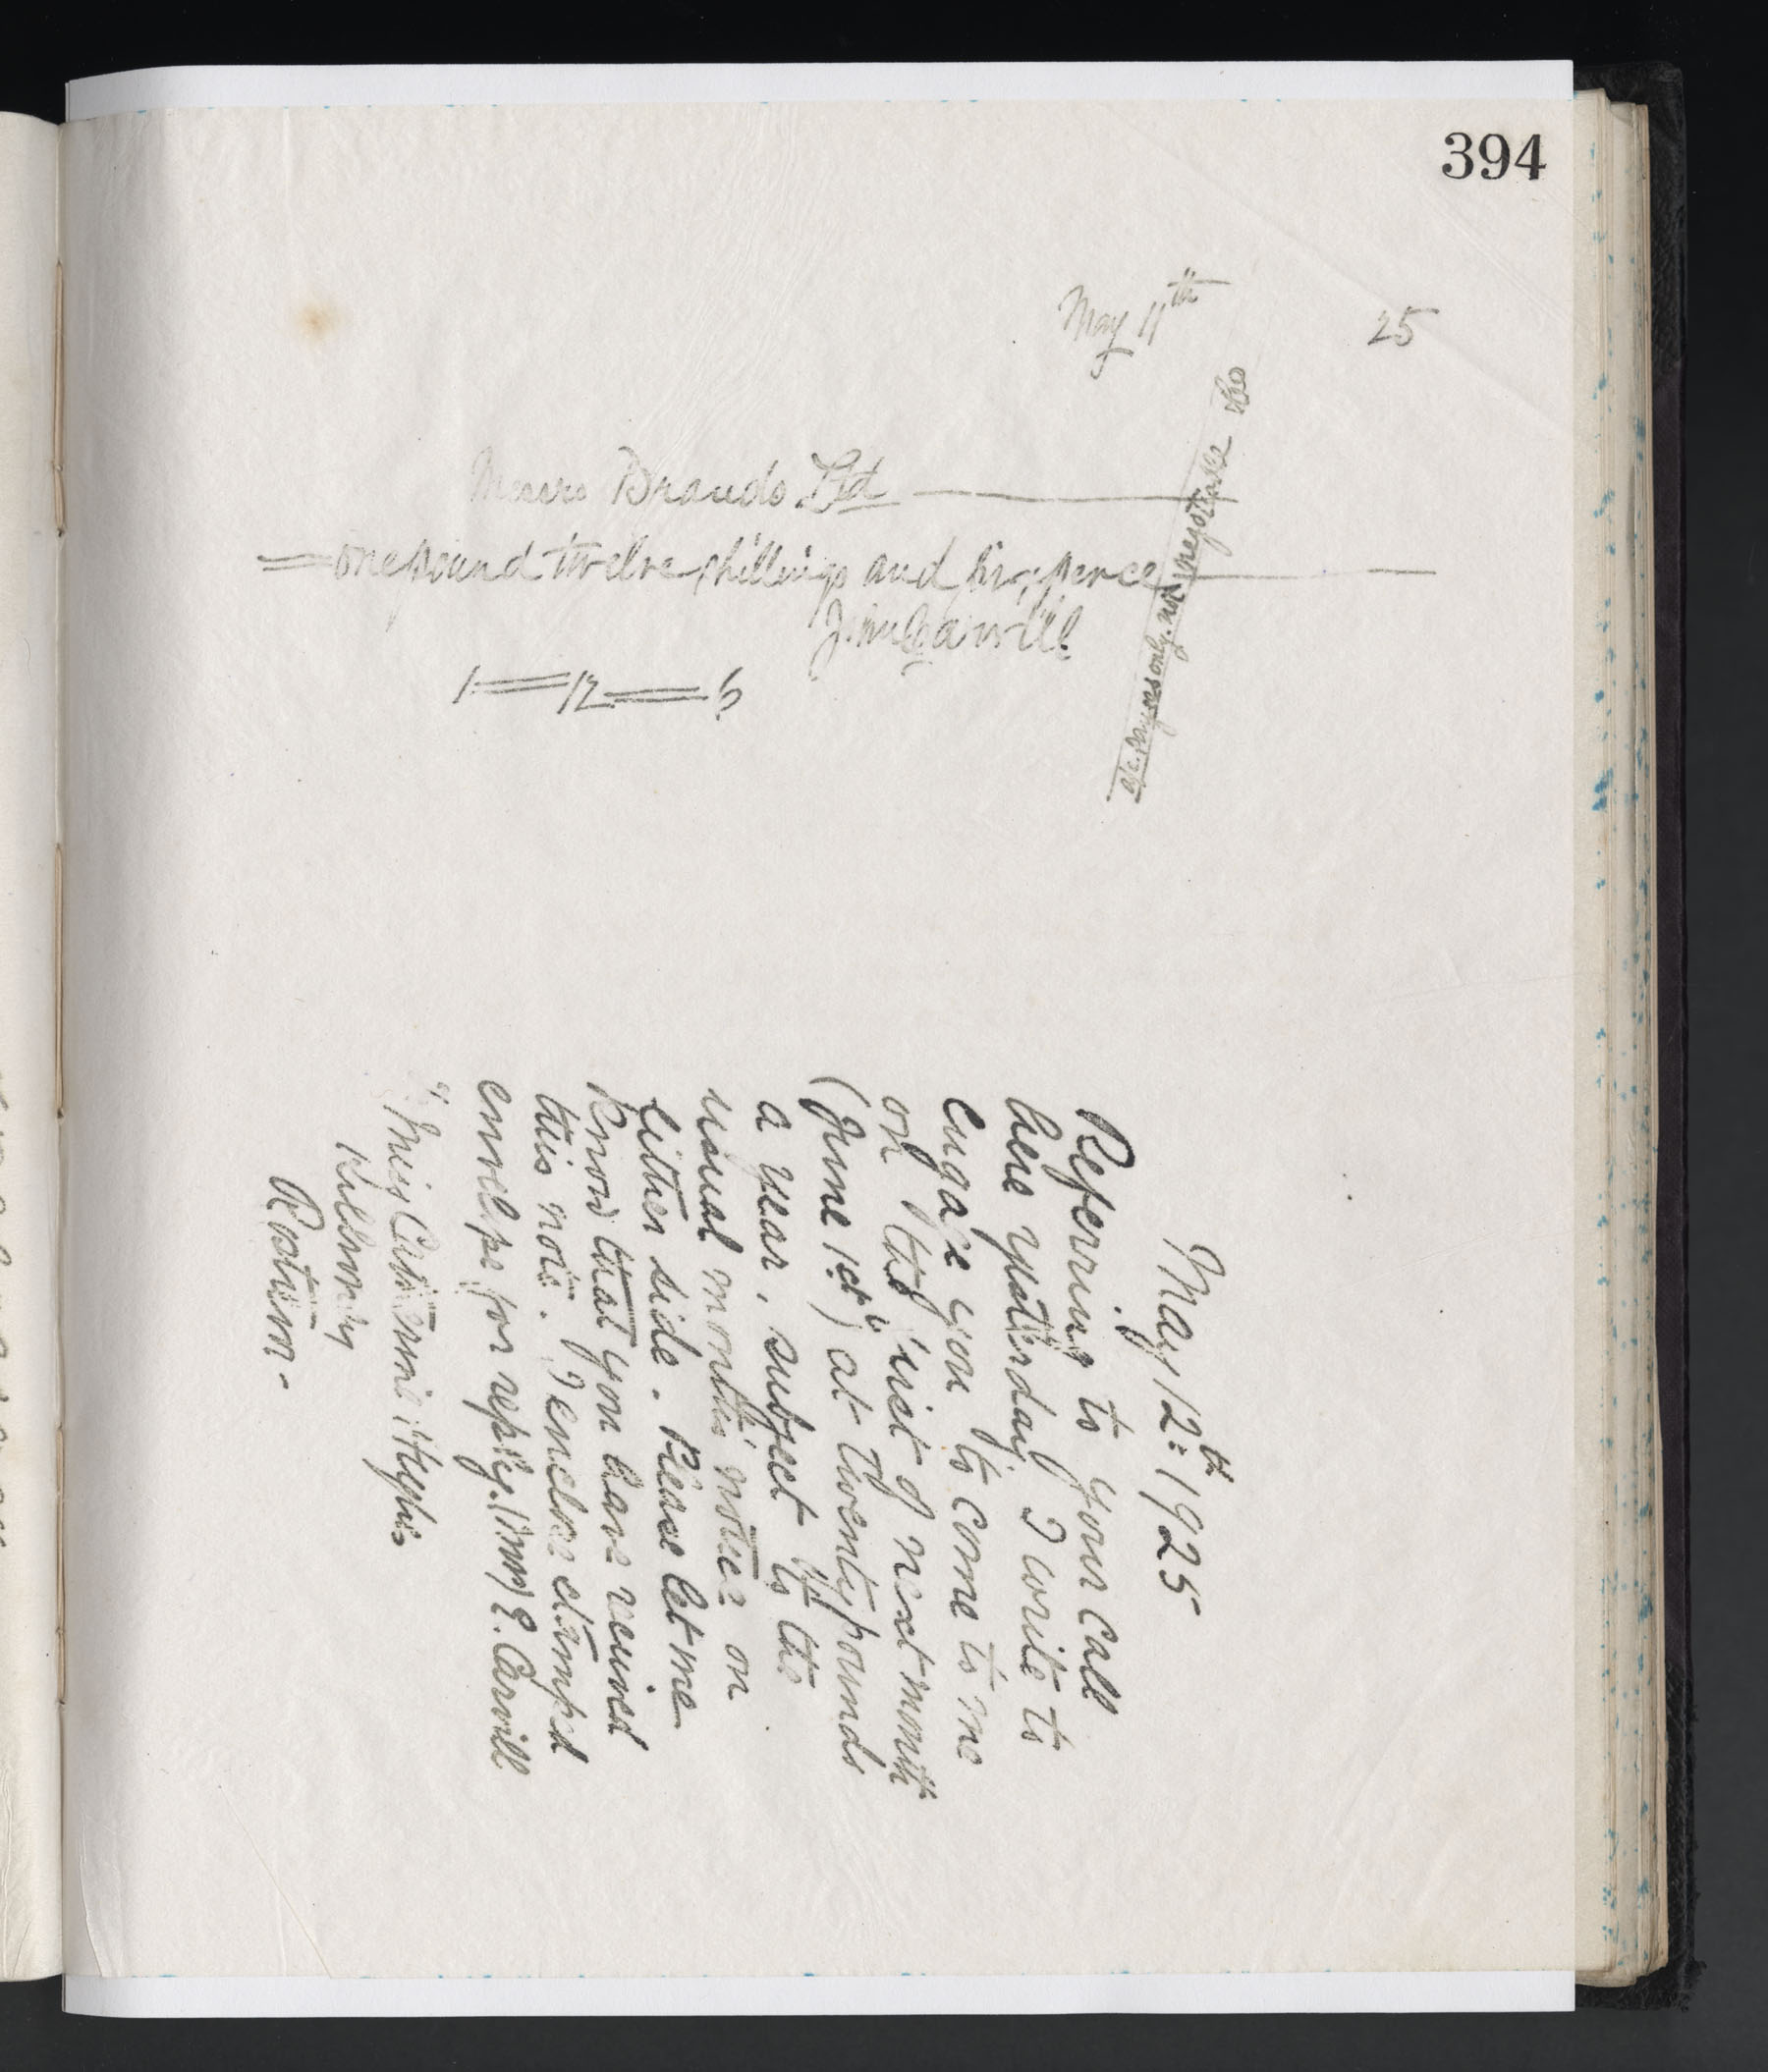 394
May 11th 25
Messrs Brands Ltd
one pound twelve shillings and sixpence
John Carvill
1 = 12 = 6
a/c payees only. not negotiable &Co
May 12th 1925
Referring to your call
here yesterday I write to
engage you to come to me
on the first of next month
(June 1st) at twenty pounds
a year, subject to the
usual months notice on
either side. Please let me
know that you have received
this note. I enclose stamped
envelope for reply. (Mrs) E. Carvill
Miss Catherine
Rostrevor.